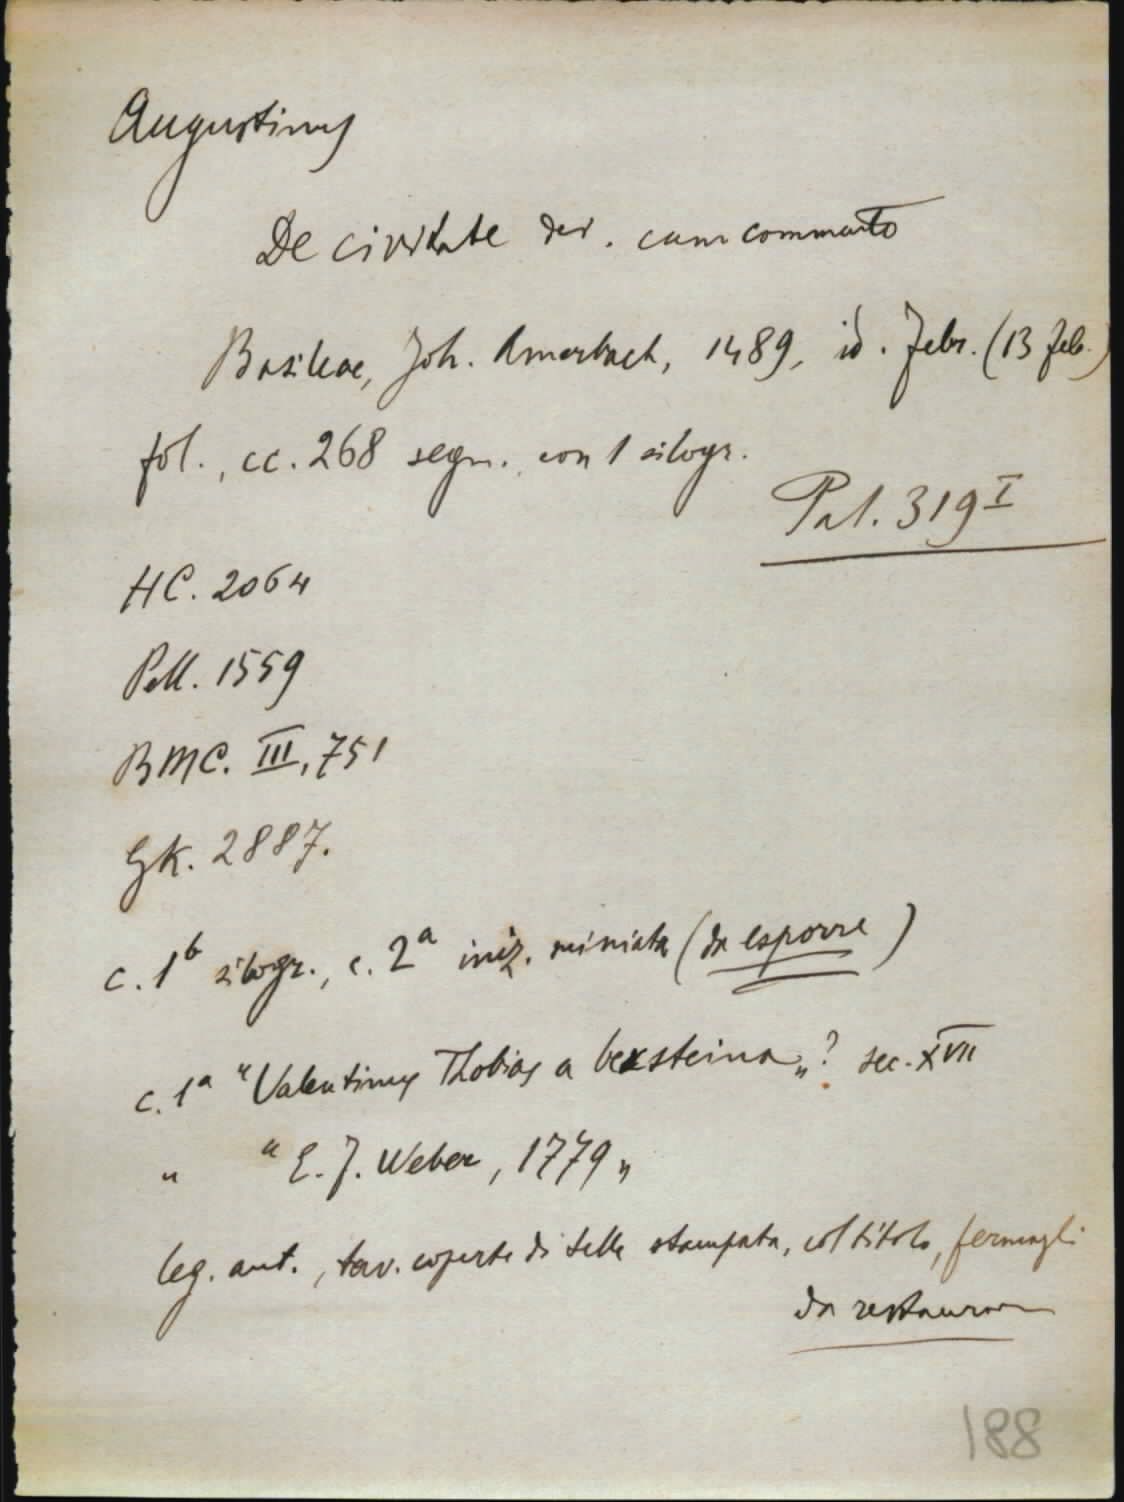 Augustinus
De civitate dei. cum commento
Basileae, Joh. Amerbach, 1489, id. Febr. (13 feb.)
fol., cc. 268 segn. con 1 silogr.
Pal. 319 I
HC. 2064
Pell. 1559
BMC. III, 751
GK. 2887.
c. 1b silogr., c. 2a iniz. miniata (da esporre)
c. 1a "Valentinus Thobias a bexsteina„? sec. XVII
" "E. J. Weber, 1779„
leg. ant., tav. coperte di pelle stampata, col titolo, fermagli
da restaurare
188